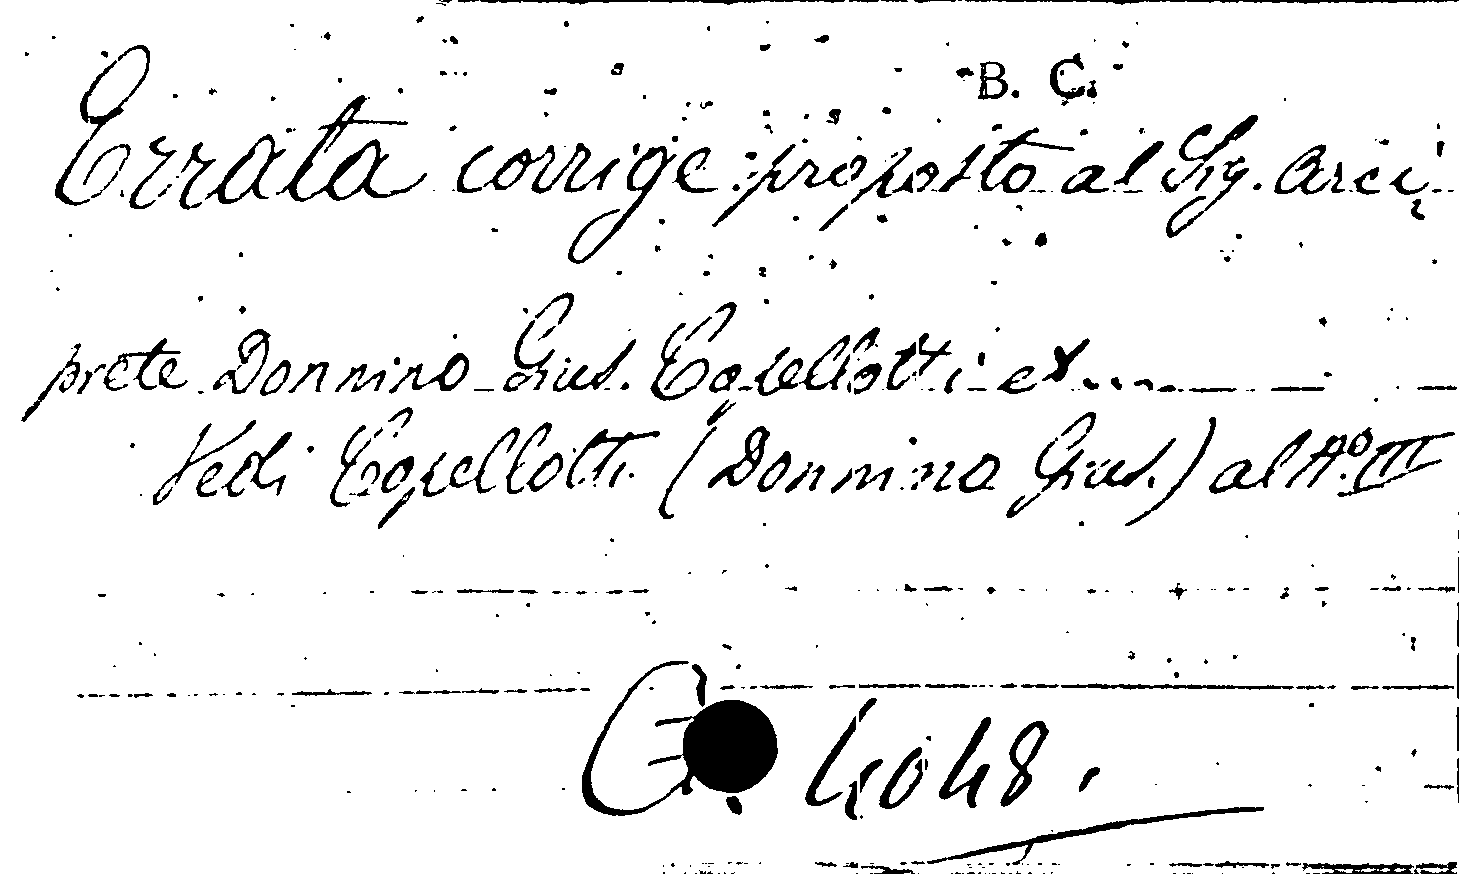 B. C.
Errata corrige proposto al Sig. Arci,
prete Donnino Gius. Copellotti ex....
Vedi Copellotti (Donnino Gius.) al A.º III
C. 4048.